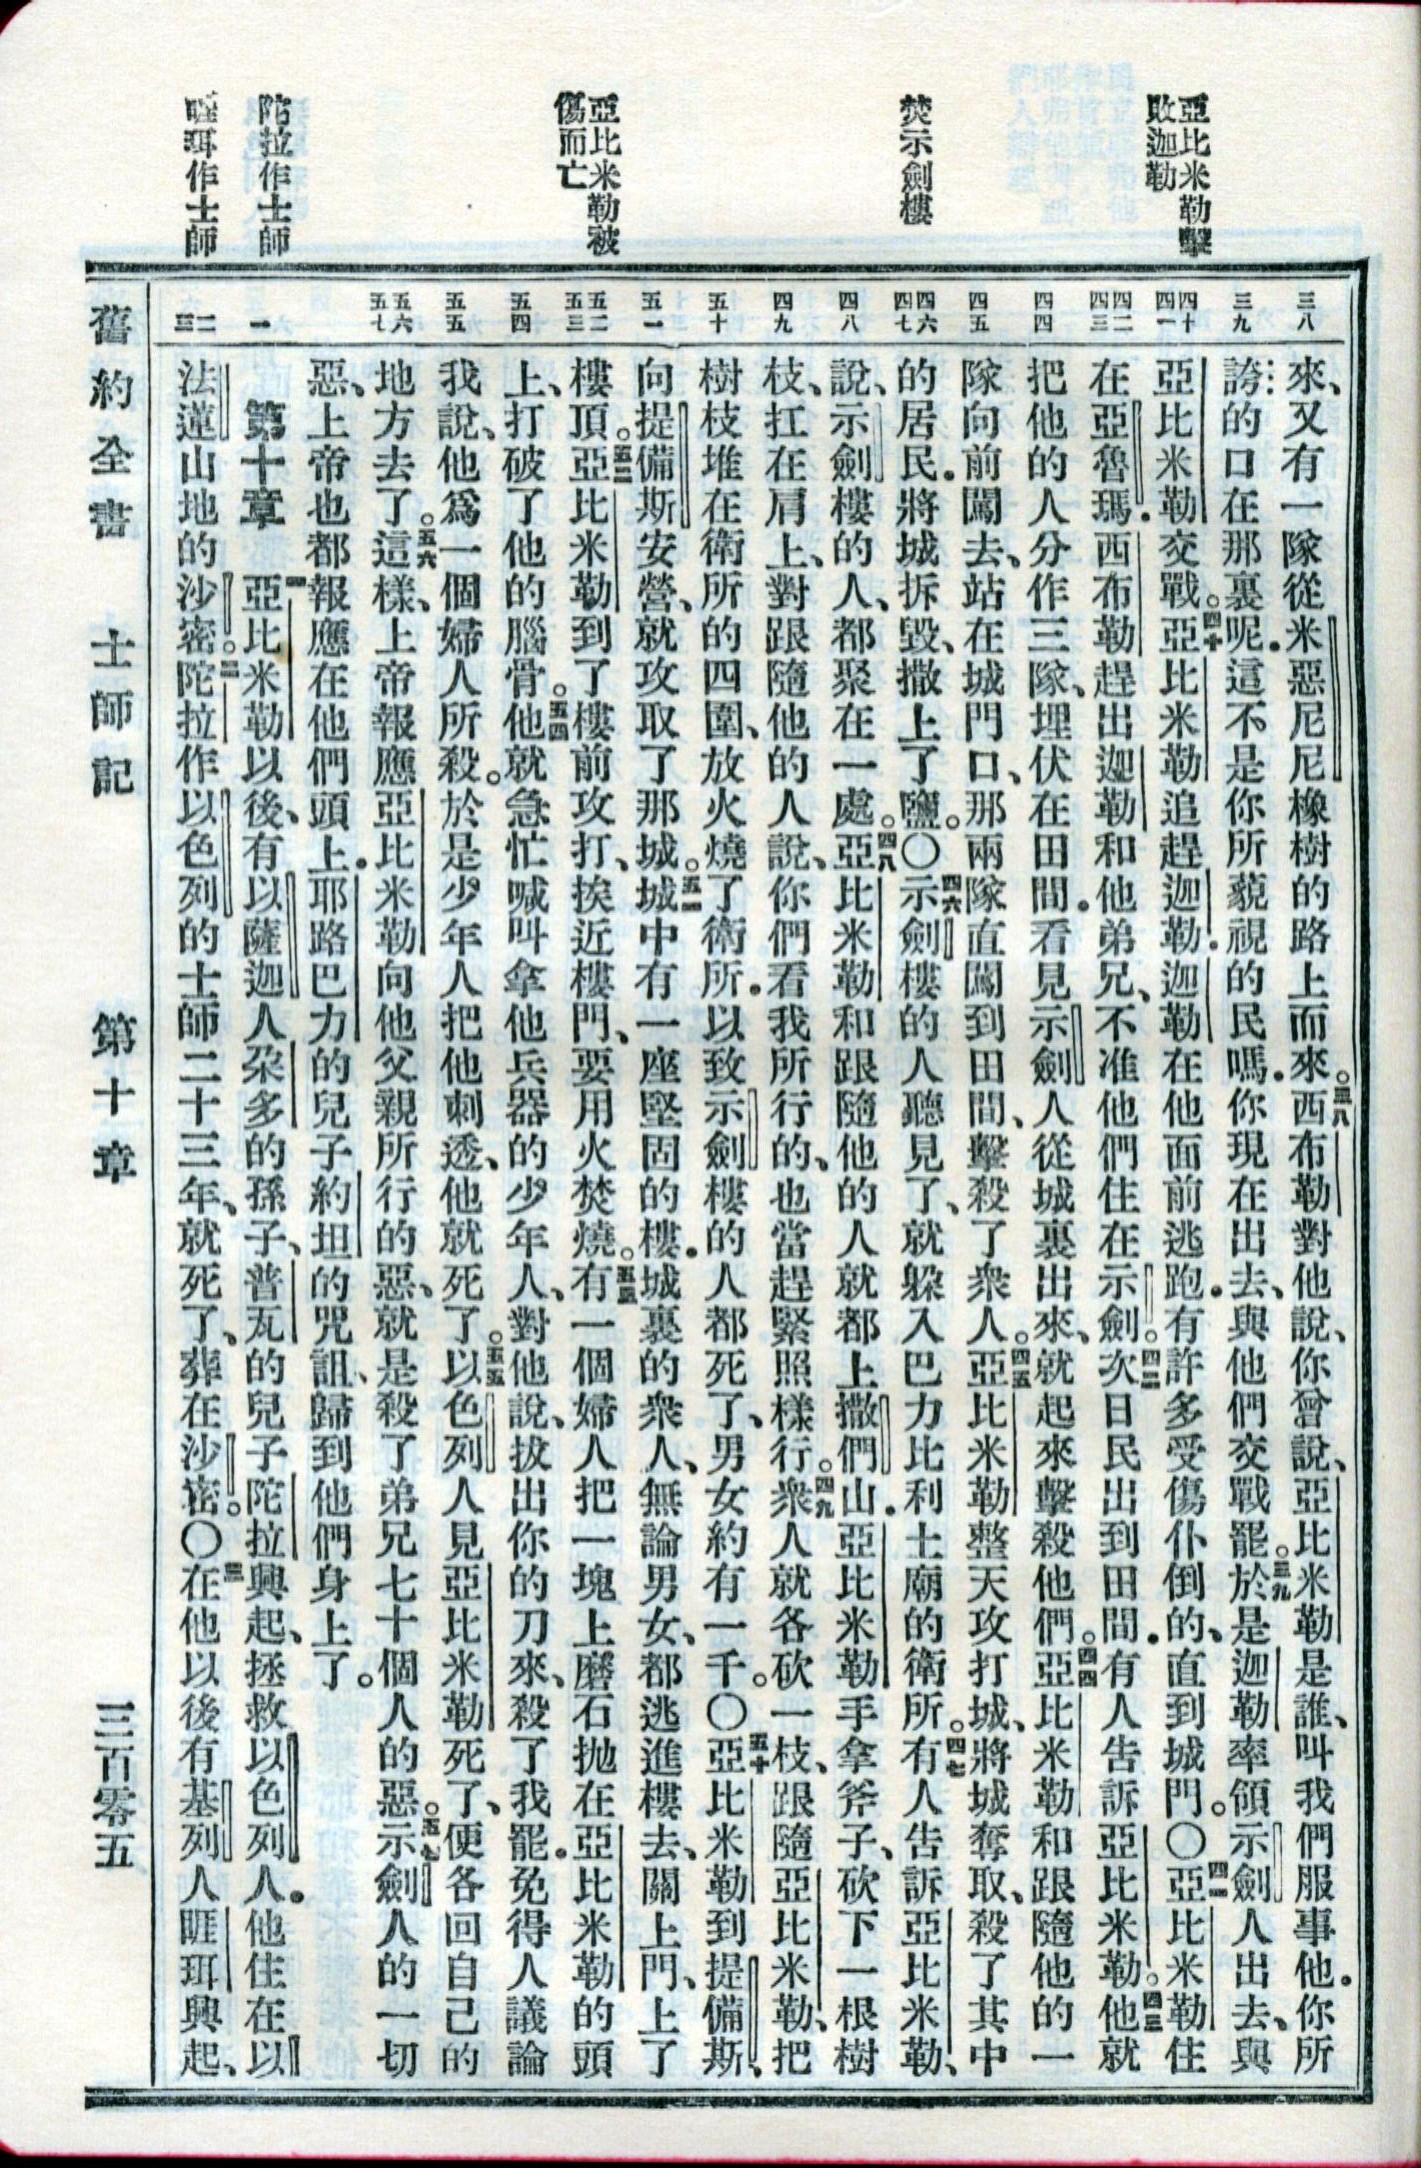 亞比米勒擊
敗迦勒
焚示劍樓
亞比米勒被
傷而亡
陀拉作士師
睚珥作士師
三八
三九
四十 四一
四二 四三
四四
四五
四六 四七
四八
四九
五十
五一
五二 五三
五四
五五
五六 五七
一
二 三
來、又有一隊從米惡尼尼橡樹的路上而來。三八西布勒對他說、你曾說、亞比米勒是誰、叫我們服事他．你所
誇的口在那裏呢．這不是你所藐視的民嗎．你現在出去、與他們交戰罷。三九於是迦勒率領示劍人出去、與
亞比米勒交戰。四十亞比米勒追趕迦勒．迦勒在他面前逃跑．有許多受傷仆倒的、直到城門。○四一亞比米勒住
在亞魯瑪．西布勒趕出迦勒和他弟兄、不准他們住在示劍。四二次日民出到田間．有人告訴亞比米勒。四三他就
把他的人分作三隊、埋伏在田間．看見示劍人從城裏出來、就起來擊殺他們。四四亞比米勒和跟隨他的一
隊向前闖去、站在城門口、那兩隊直闖到田間、擊殺了衆人。四五亞比米勒整天攻打城、將城奪取、殺了其中
的居民．將城拆毀、撒上了鹽。○四六示劍樓的人聽見了、就躱入巴力比利土廟的衛所。四七有人告訴亞比米勒、
說、示劍樓的人、都聚在一處。四八亞比米勒和跟隨他的人就都上撒們山．亞比米勒手拿斧子、砍下一根樹
枝、扛在肩上、對跟隨他的人說、你們看我所行的、也當趕緊照樣行。四九衆人就各砍一枝、跟隨亞比米勒、把
樹枝堆在衛所的四圍、放火燒了衛所．以致示劍樓的人都死了、男女約有一千。○五十亞比米勒到提備斯、
向提備斯安營、就攻取了那城。五一城中有一座堅固的樓．城裏的衆人、無論男女、都逃進樓去、關上門、上了
樓頂。五二亞比米勒到了樓前攻打、挨近樓門、要用火焚燒。五三有一個婦人把一塊上磨石拋在亞比米勒的頭
上、打破了他的腦骨。五四他就急忙喊叫拿他兵器的少年人、對他說、拔出你的刀來、殺了我罷．免得人議論
我說、他爲一個婦人所殺。於是少年人把他刺透、他就死了。五五以色列人見亞比米勒死了、便各回自己的
地方去了。五六這樣、上帝報應亞比米勒向他父親所行的惡、就是殺了弟兄七十個人的惡。五七示劍人的一切
惡、上帝也都報應在他們頭上．耶路巴力的兒子約坦的咒詛、歸到他們身上了。
第十章 一亞比米勒以後、有以薩迦人朶多的孫子、普瓦的兒子陀拉興起、拯救以色列人．他住在以
法蓮山地的沙密。二陀拉作以色列的士師二十三年、就死了、葬在沙密。○三在他以後有基列人睚珥興起、
舊約全書 士師記 第十章 三百零五